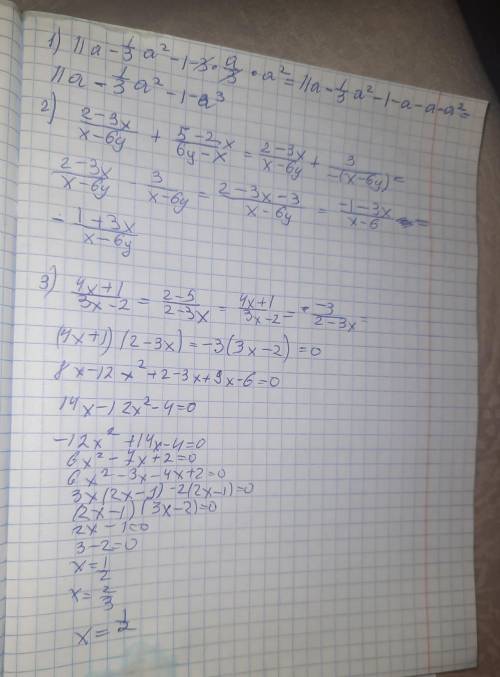 1) 11a - 1/3 a² - 1 - 3 · a/3 · a² = 11a - 1/3 a² - 1 - a - a - a² =
11a - 1/3 a² - 1 - a³
2) (2-3x)/(x-6y) + (5-2)/(6y-x) x = (2-3x)/(x-6y) + 3/(-(x-6y)) =
(2-3x)/(x-6y) - 3/(x-6y) = (2-3x-3)/(x-6y) = (-1-3x)/(x-6) =
- (1+3x)/(x-6y)
3) (4x+1)/(3x-2) = (2-5)/(2-3x) = (4x+1)/(3x-2) = (-3)/(2-3x) =
(4x+1)(2-3x) = -3(3x-2) = 0
8x-12x²+2-3x+9x-6=0
14x-12x²-4=0
-12x²+14x-4=0
6x²-7x+2=0
6x²-3x-4x+2=0
3x(2x-1)-2(2x-1)=0
(2x-1)(3x-2)=0
2x-1=0
3-2=0
x=1/2
x=2/3
x=1/2